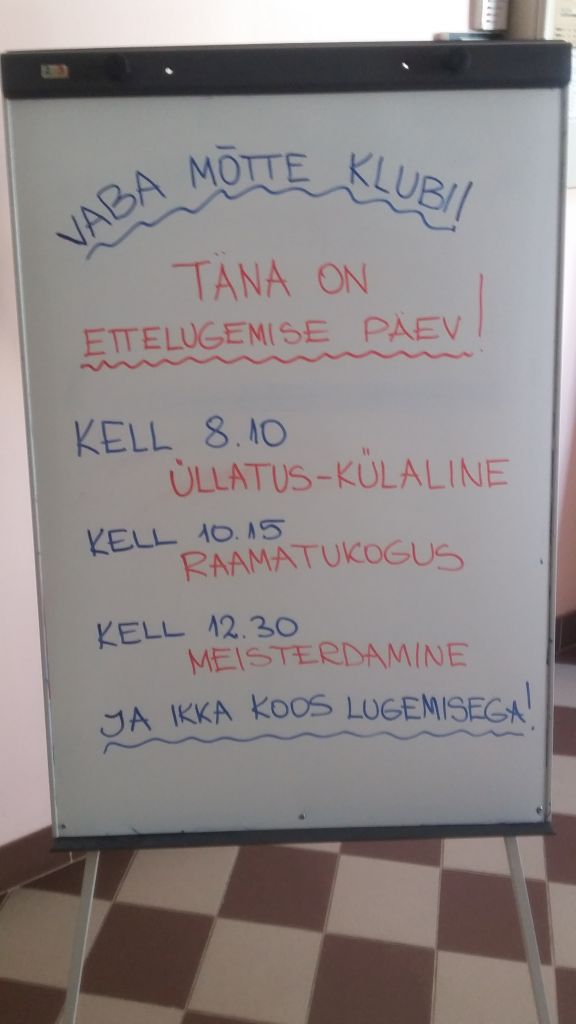 VABA MÕTTE KLUBI!
TÄNA ON
ETTELUGEMISE PÄEV!
KELL 8.10
ÜLLATUS-KÜLALINE
KELL 10.15
RAAMATUKOGUS
KELL 12.30
MEISTERDAMINE
JA IKKA KOOS LUGEMISEGA!